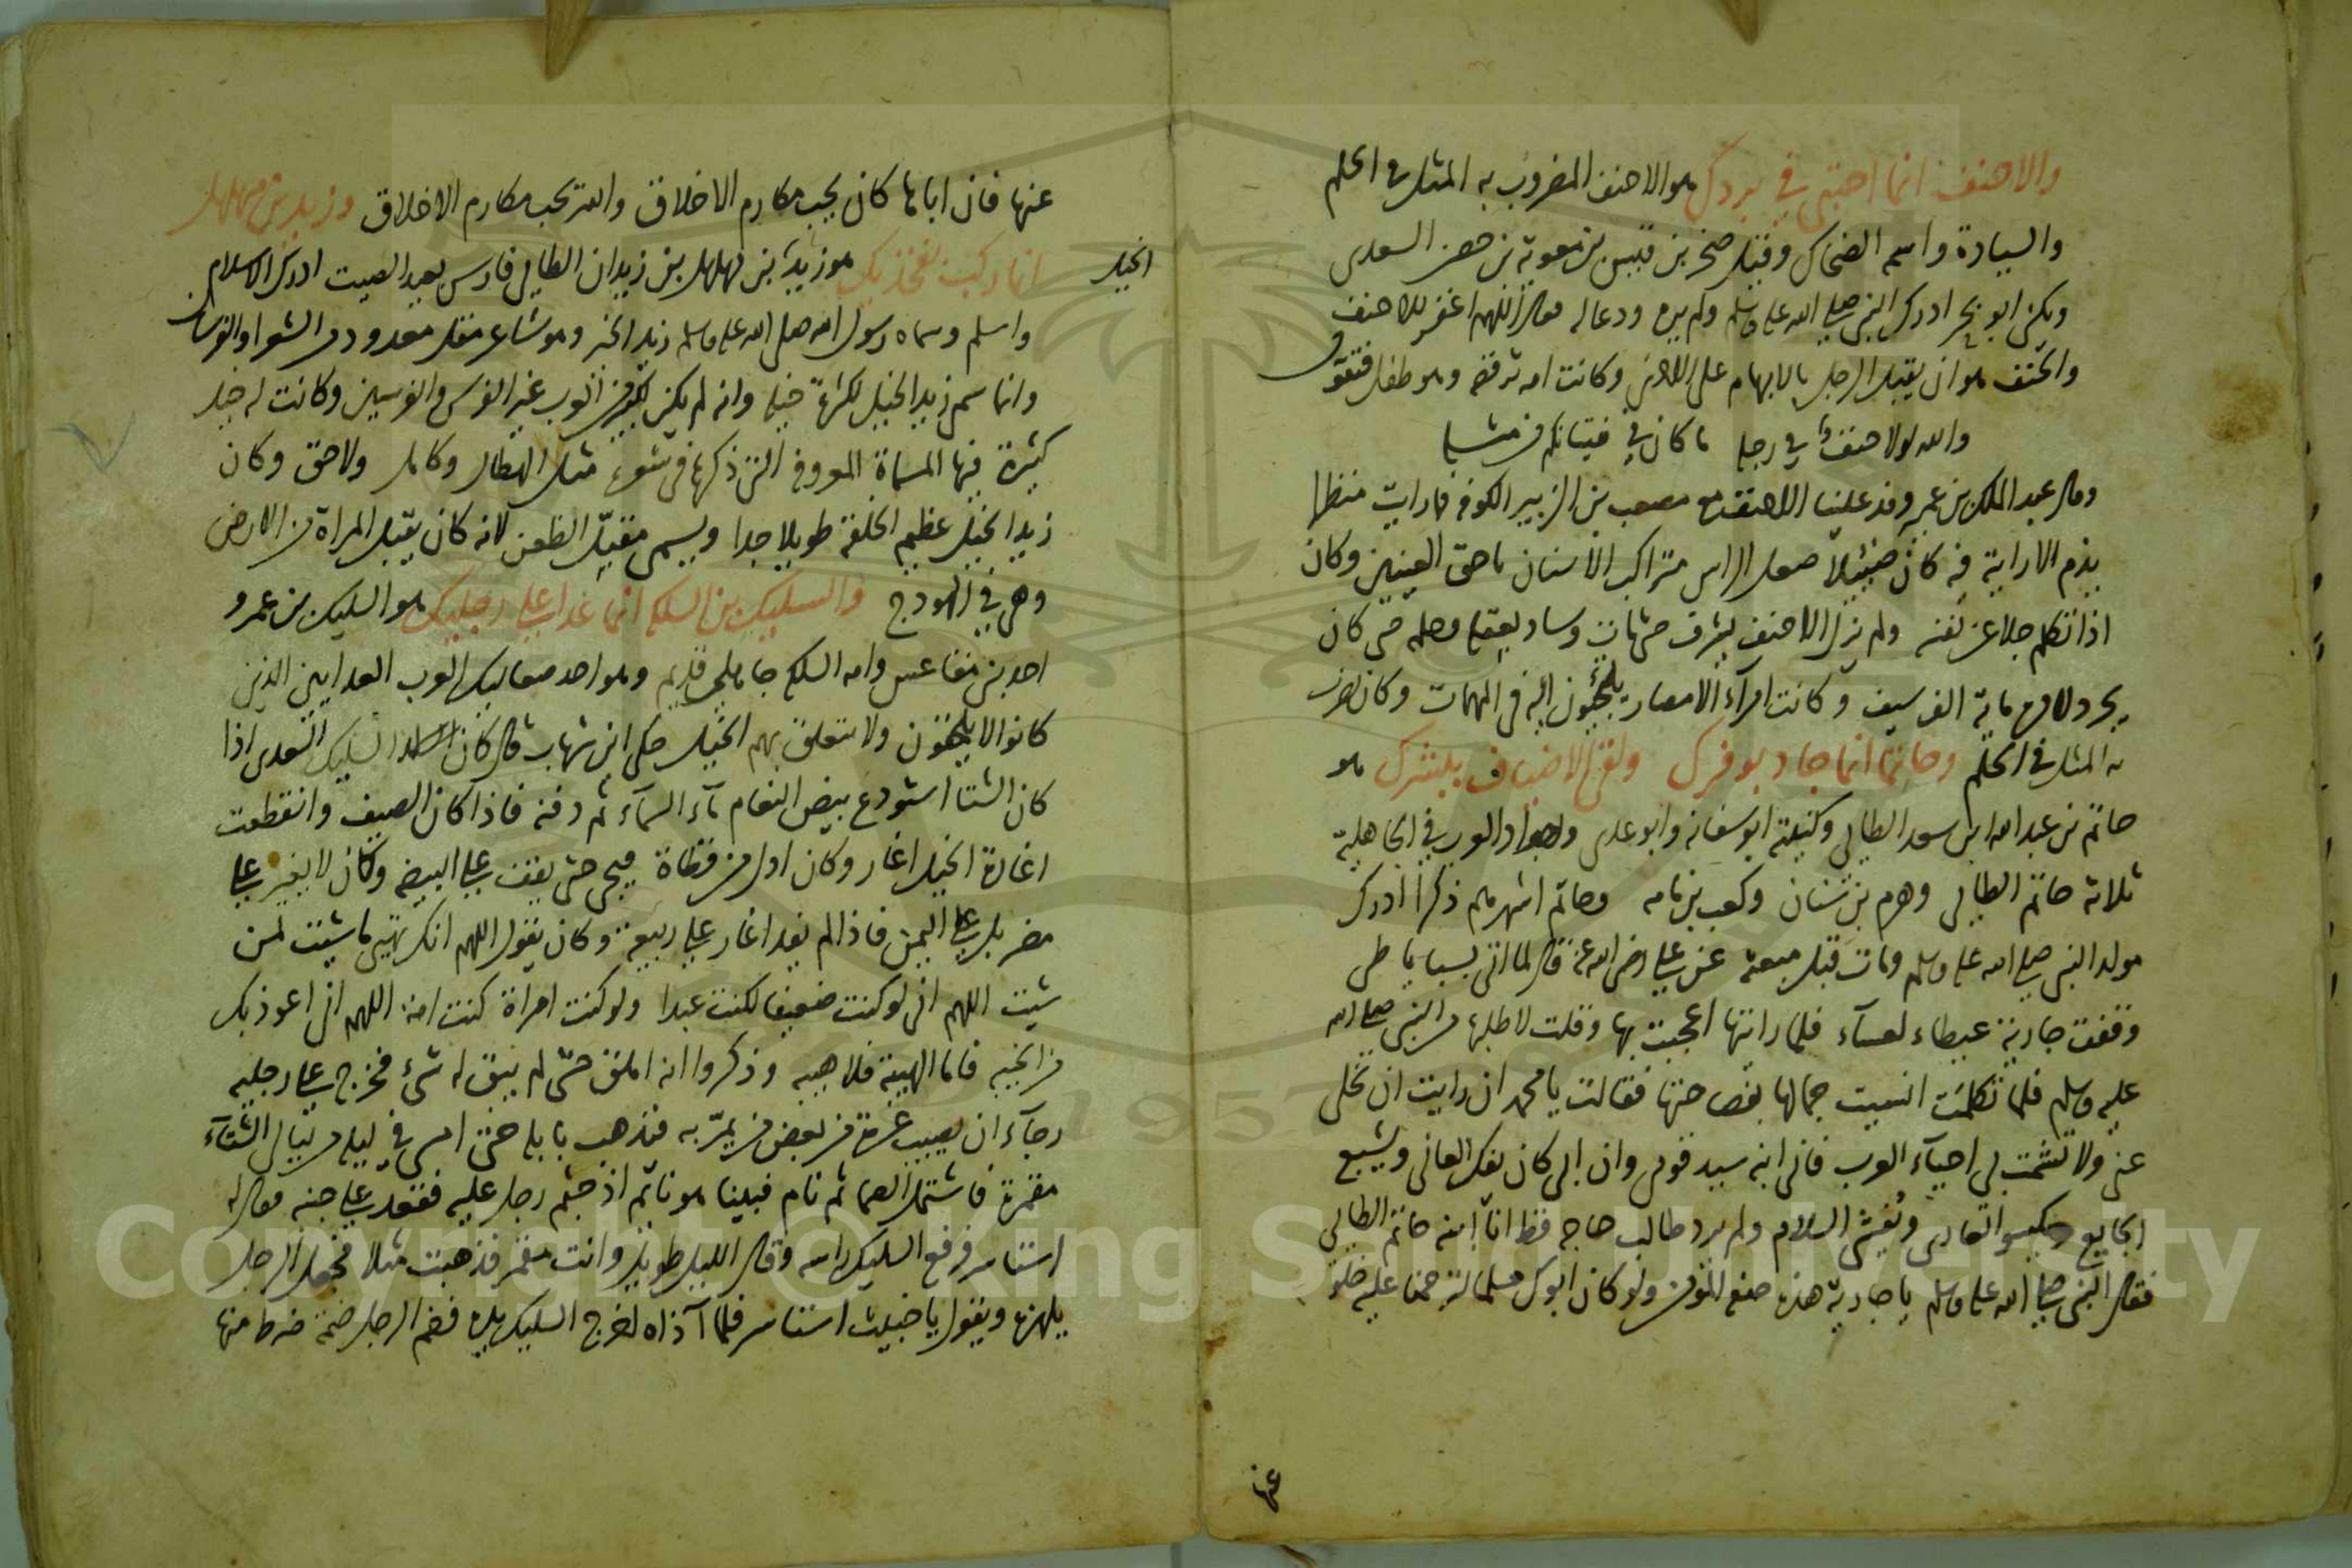 والاحنف انما احتبى في بردك هو الاحنف المضروب به المثل في الحلم
والسيادة واسمه الضحاك وقيل صخر بن قيس بن معوية بن حصن السعدي
ويكنى ابو بحر ادرك النبي صلى الله عليه وسلم ولم يره ودعا له فقال اللهم اغفر للاحنف
والحنف هو ان يقبل الرجل بالابهام على الاخرى وكانت امه ترقصه وهو طفل فتقول
والله لولا حنف في رجله ما كان في فتيانكم من مثله
وقال عبد الملك بن عمير وفد علينا الاحنف مع مصعب بن الزبير الكوفة فما رايت منظرا
يذم الا رايته فيه كان ضئيلا صعل الراس متراكب الاسنان باحق العينين وكان
اذا تكلم جلا عن نفسه ولم يزل الاحنف يشرف حتى مات وساد بعقله وحلمه حتى كان
يجرد لامره ماية الف سيف وكانت امرآء الامصار يلتجئون اليه في المهمات وكان يضرب
به المثل في الحلم وحاتما انما جاد بوفرك ولقى الاضياف ببشرك هو
حاتم بن عبد الله ابن سعد الطايي وكنيته ابو سفانه وابو عدي واجواد العرب في الجاهلية
ثلاثة حاتم الطايي وهرم بن سنان وكعب بن مامه وحاتم اشهرهم ذكرا ادرك
مولد النبي صلى الله عليه وسلم ومات قبل مبعثه عن علي رضي الله عنه قال لما اتى بسبايا طي
وقفت جارية عيطاء لعسآء فلما رايتها اعجبت بها وقلت لاطلبنها من النبي صلى الله
عليه وسلم فلما تكلمت انسيت جمالها بفصاحتها فقالت يا محمد ان رايت ان تخلى
عني ولا تشمت بي احيآء العرب فاني ابنة سيد قومي وان ابي كان يفك العاني ويشبع
الجايع ويكسو العاري ويفشي السلام ولم يرد طالب حاجة قط انا ابنة حاتم الطايي
فقال النبي صلى الله عليه وسلم يا جارية هذه صفة المؤمن ولو كان ابوك مسلما لترحمنا عليه خلوا
عنها
عنها فان اباها كان يحب مكارم الاخلاق والله يحب مكارم الاخلاق وزيد بن مهلهل
الخيل
انما ركب بفخذيك هو زيد بن مهلهل بن زيدان الطايي فارس بعيد الصيت ادرك الاسلام
واسلم وسماه رسول الله صلى الله عليه وسلم زيد الخير وهو شاعر مقل معدود من الشعرا والفرسان
وانما سمي زيد الخيل لكثرة خيله وانه لم يكن لكثير من العرب غير الفرس والفرسين وكانت له خيل
كثيرة فيها المسماة المعروفة التي ذكرها في شعره مثل الهطال وكامل ولاحق وكان
زيد الخيل عظيم الخلقة طويلا جدا ويسمى مقبل الظعن لانه كان يقبل المراة من الارض
وهي في الهودج والسليك بن السلكه انما عدا على رجليك هو السليك بن عمرو
احد بني مقاعس وامه السلكه جاهلي قديم وهو احد صعاليك العرب العدايين الذين
كانوا لا يلحقون ولا تتعلق بهم الخيل حكى ابن شهاب قال كان السليك السعدي اذا
كان الشتا استودع بيض النعام مآء السمآء ثم دفنه فاذا كان الصيف وانقطعت
اغارة الخيل اغار وكان ادل من قطاة فيجي حتى يقف على البيضه وكان لا يغير على
مضر بل على اليمن فاذا لم يغد اغار على ربيعة وكان يقول اللهم انك تهيي ما شيت لمن
شيت اللهم اني لو كنت ضعيفا لكنت عبدا ولو كنت امراة كنت امة اللهم اني اعوذ بك
من الخيبه فاما الهيبة فلا هيبه وذكروا انه املق حتى لم يبق له شئ فخرج على رجليه
رجآء ان يصيب غرة من بعض من يمر به فيذهب بابله حتى امسى في ليلة من ليالي الشتآء
مقمرة فاشتمل الصما ثم نام فبينا هو نائم اذ جثم رجل عليه فقعد على جنبه فقال له
استاسر فرفع السليك راسه وقال الليل طويل وانت مقمر فذهبت مثلا فجعل الرجل
يلهزه ويقول يا خبيث استاسر فلما آذاه اخرج السليك يده فضم الرجل ضمة ضرط منها